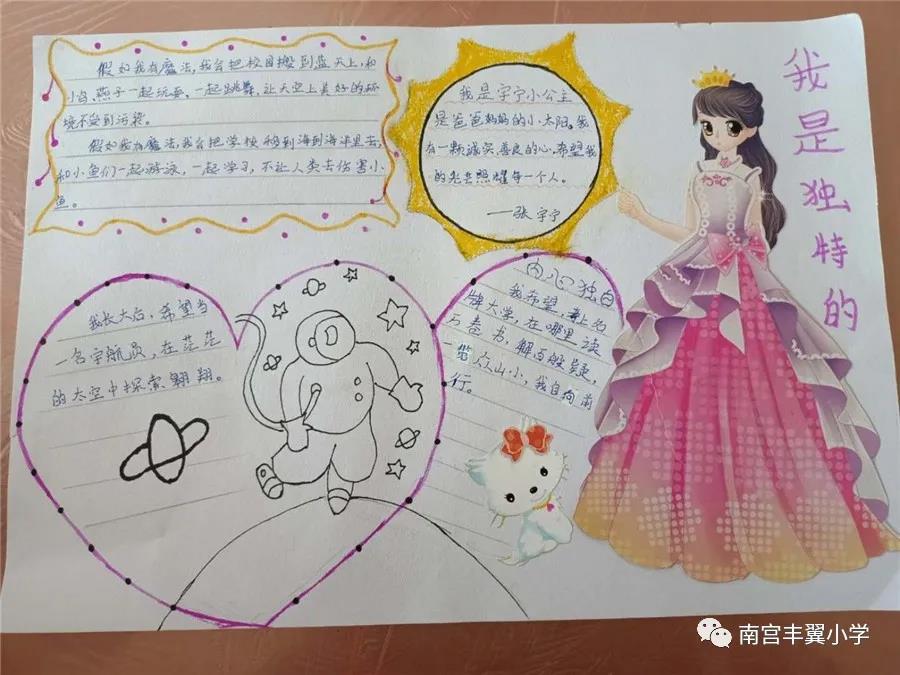 我是独特的
假如我有魔法,我会把校园搬到蓝天上,和
小鸟、燕子一起玩耍、一起跳舞,让天空上美好的环
境不受到污染。
假如我有魔法,我会把学校移到海到海洋里去,
和小鱼们一起游泳,一起学习,不让人类去伤害小
鱼。
我是宇宁小公主
是爸爸妈妈的小太阳。我
有一颗诚实、善良的心,希望我
的光芒照耀每一个人。
——张宇宁
我长大后,希望当
一名宇航员,在茫茫
的太空中探索翱翔。
内心独白
我希望,上名
牌大学,在哪里读
万卷书,解百般疑,
览众山小,我自向前
行。
南宫丰翼小学